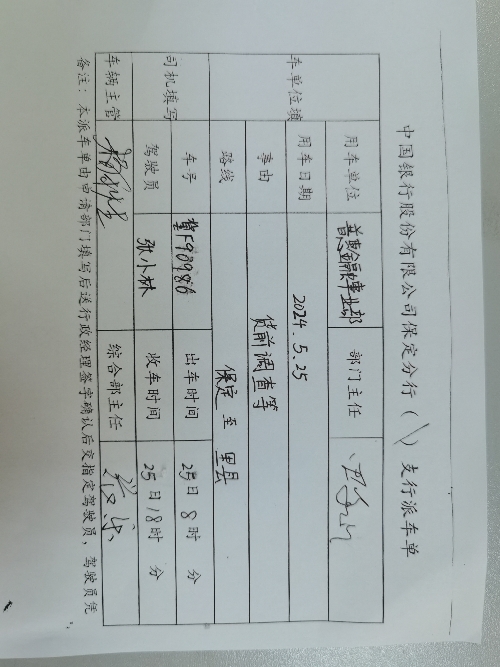 中国银行股份有限公司保定分行（\）支行派车单
车单位填
用车单位 普惠金融事业部 部门主任
用车日期 2024.5.25
事由 贷前调查等
路线 保定 至 里县
司机填写
车号 冀F90986 出车时间 25日 8时 分
驾驶员 张小林 收车时间 25日18时 分
车辆主管 综合部主任
备注：本派车单由申请部门填写后送行政经理签字确认后交指定驾驶员，驾驶员凭